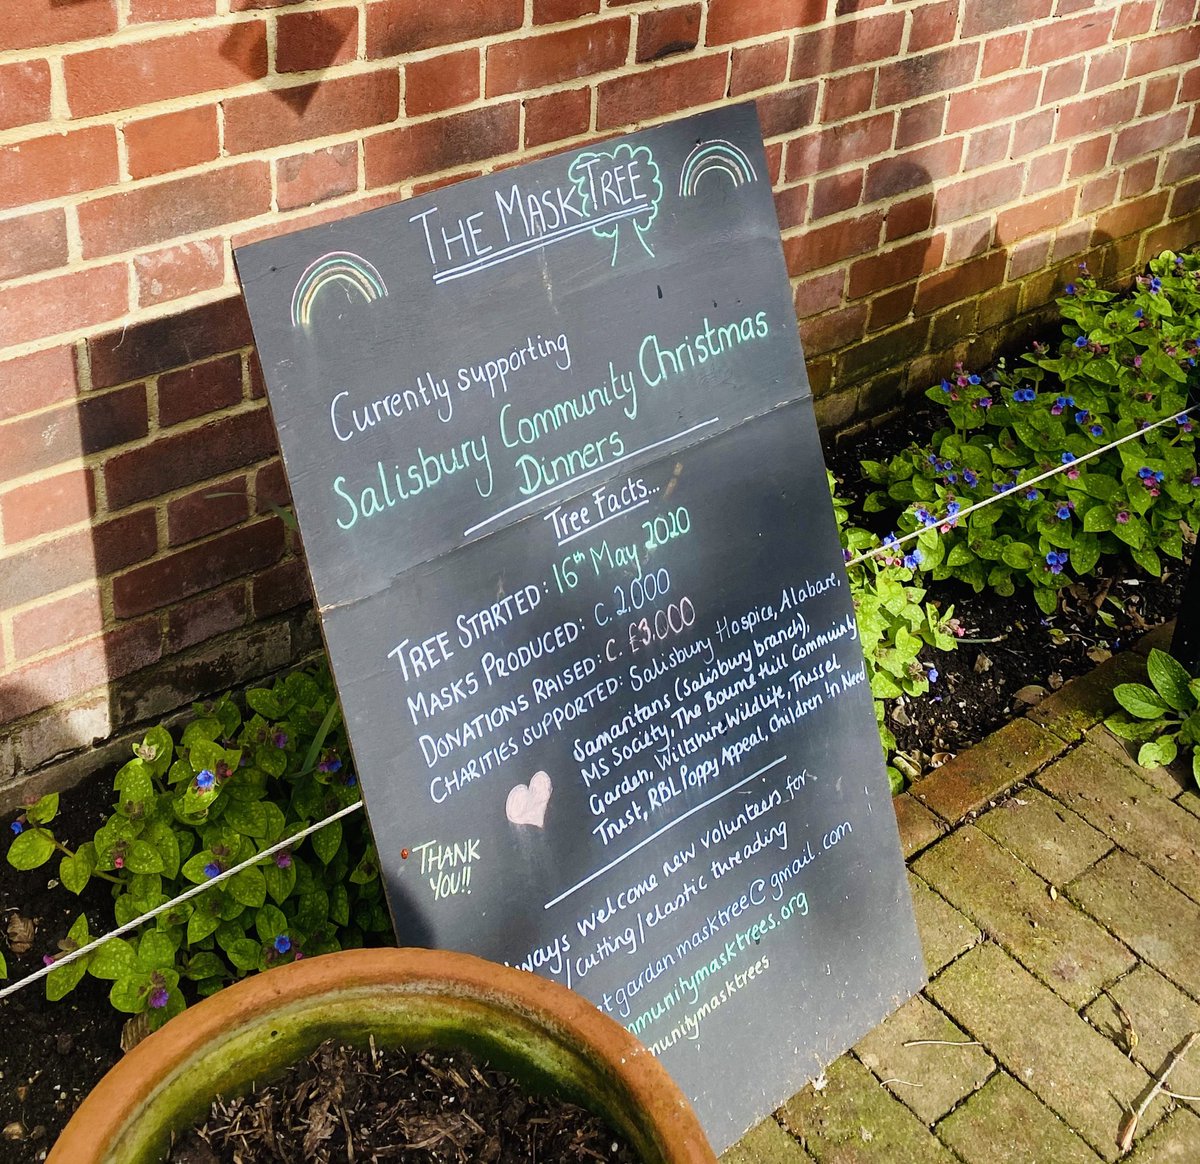 THE MASK TREE
Currently supporting
Salisbury Community Christmas
Dinners
Tree Facts...
TREE STARTED: 16th May 2020
MASKS PRODUCED: c. 2,000
DONATIONS RAISED: c. £3,000
CHARITIES SUPPORTED: Salisbury Hospice, Alabare,
Samaritans (Salisbury branch),
MS Society, The Bourne Hill Community
Garden, Wiltshire Wildlife, Trussel
Trust, RBL Poppy Appeal, Children in Need
THANK
YOU!!
welcome new volunteers for
/cutting/elastic threading
gardenmasktree@gmail.com
munitymasktrees.org
munitymasktrees